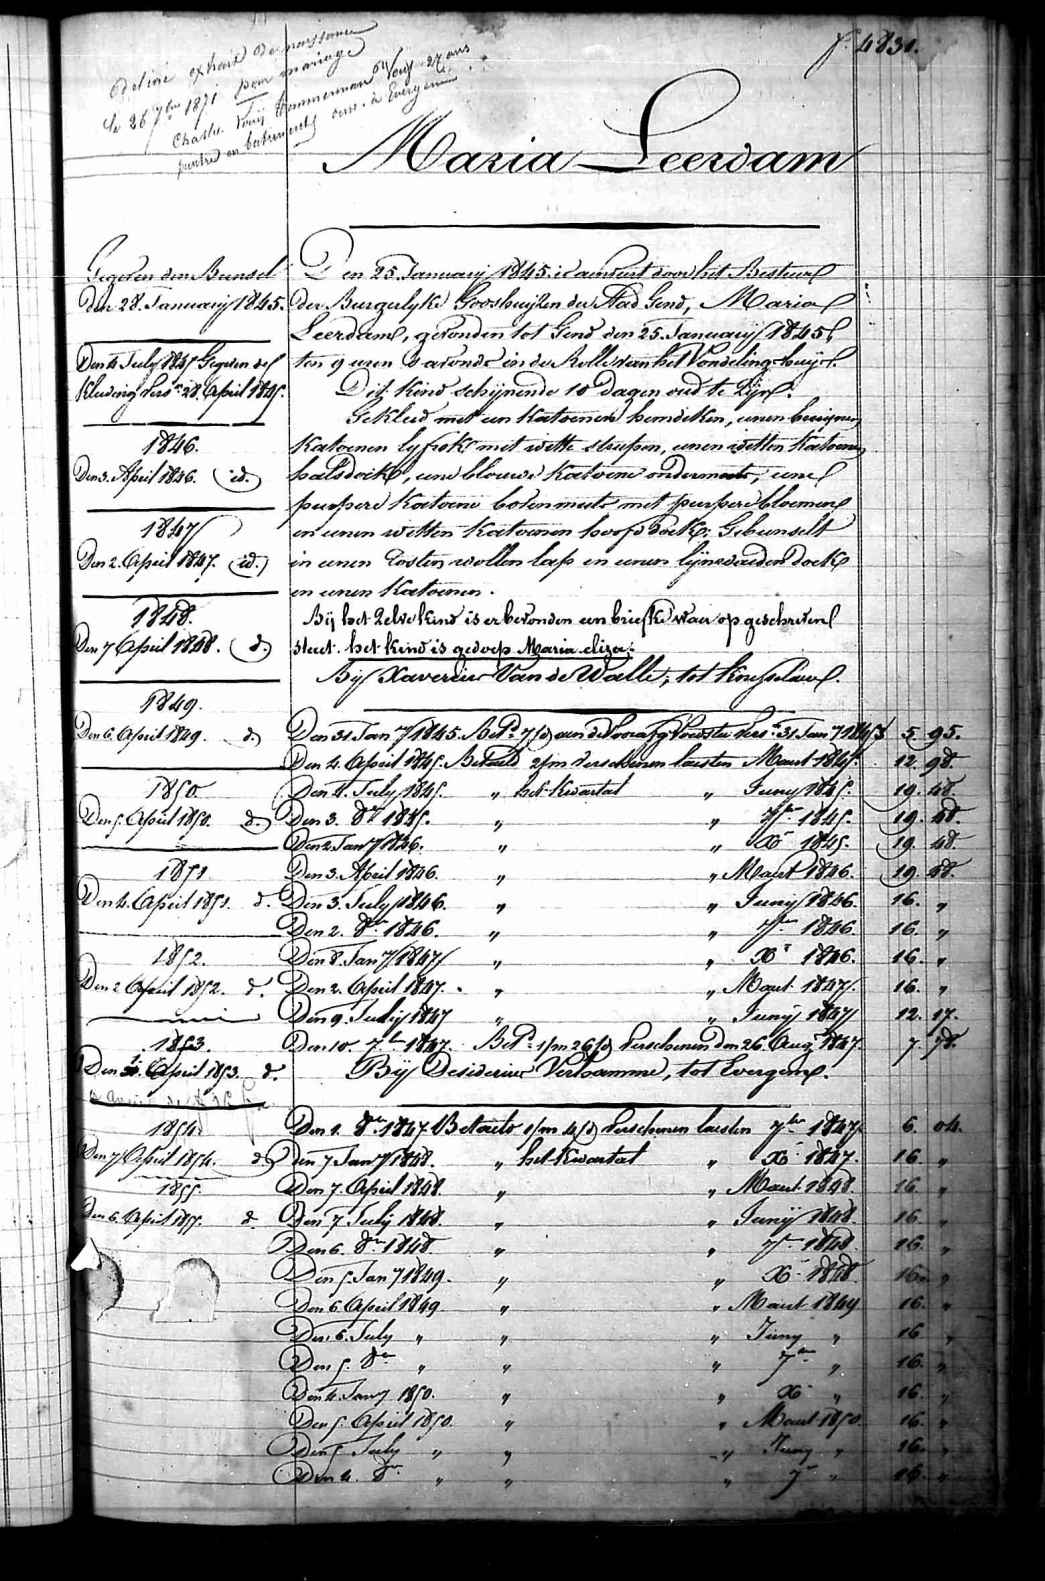 f. 4831.
Delivré extrait de naissance
le 26 7bre 1871 pour mariage
Charles Louis
Maria Leerdam
Gegeven den Bunsel
Den 28. January 1845.
Den 4 July 1845 Gegeven de
Kleeding vers. 28. April 1845.
1846.
Den 3. April 1846. id.
1847
Den 2. April 1847. id.
1848.
Den 7 April 1848. d.
1849.
Den 6. April 1849. d.
1850.
Den 5. April 1850. d.
1851
Den 4. April 1851. d.
1852.
Den 2 April 1852. d.
1853.
Den April 1853. d.
1854.
Den 7 April 1854. d.
1855.
Den 6. April 1855. d.
Den 25. January 1845. is aenveert door het Bestuer
der Burgerlyke Godshuijzen der Stad Gend, Maria
Leerdam, gevonden tot Gend den 25. January 1845
ten 9 uren s'avonds in de Rolle van het Vondelinghuijs.
Dit kind schijnende 10 dagen oud te Zijn.
Gekleed met een katoenen hemdeken, eenen bruijnen
katoenen lyfrok met witte streepen, eenen witten katoenen
halsdoek, eene blauwe katoene ondermuts, eene
purpere katoene bovenmuts met purpere bloemen
en eenen witten katoenen hoofddoek. Gebunselt
in eenen wollen lap en eenen lynwaeden doek
en eenen katoenen.
Bij het Zelve kind is er bevonden een briefke waer op geschreven
staet. het kind is gedoop Maria eliza.
Bij Xaverius Van de Walle, tot Knesselaere.
Den 31 Jan y 1845. Betd 7/d aen de voorafg Voedster vers. 31 Jan y 1845 5. 95.
Den 4. April 1845. Betaeld 2/m verschenen laesten Maert 1845. 12. 98.
Den 4. July 1845. " het kwartael " Juny 1845. 19. 48.
Den 3. 8bre 1845. " " 7bre 1845. 19. 48.
Den 2 Jan y 1846. " " Xr 1845. 19. 48.
Den 3. April 1846. " " Maert 1846. 19. 48.
Den 3. July 1846. " " Juny 1846. 16. "
Den 2. 8bre 1846. " " 7bre 1846. 16. "
Den 8. Jan y 1847 " " Xr 1846. 16. "
Den 2. April 1847. " " Maert 1847. 16. "
Den 9. July 1847 " " Juny 1847 12. 17.
Den 10. 7bre 1847. Betd 1/m 26/d verschenen den 26. Aug 1847. 7. 78.
Bij Desiderius Verloamme, tot Evergem.
Den 1. 8bre 1847. Betaeld 1/m 4/d verschenen laesten 7bre 1847. 6. 04.
Den 7 Jan y 1848. " het kwartael " Xr 1847. 16. "
Den 7. April 1848. " " Maert 1848. 16. "
Den 7 July 1848. " " Junij 1848. 16. "
Den 6. 8bre 1848. " " 7bre 1848. 16. "
Den 5. Jan y 1849. " " Xr 1848. 16. "
Den 6. April 1849 " " Maert 1849 16. "
Den 6. July " " " Juny " 16. "
Den 5. 8bre " " " 7bre " 16. "
Den 4. Jan y 1850. " " Xr " 16. "
Den 5. April 1850. " " Maert 1850. 16. "
Den 5 July " " " Juny " 16. "
Den 4. 8bre " " " 7r " 16. "